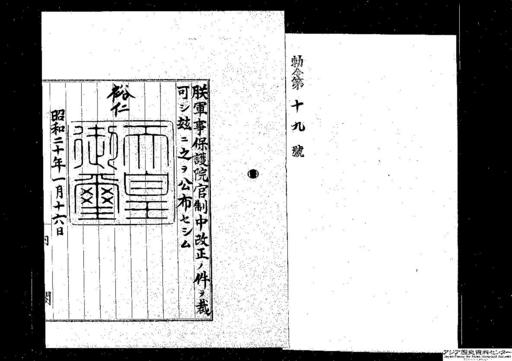 勅令第十九號
朕軍事保護院官制中改正ノ件ヲ裁
可シ玆ニ之ヲ公布セシム
裕仁
天皇
御璽
昭和二十年一月十六日
内閣
アジア歴史資料センター